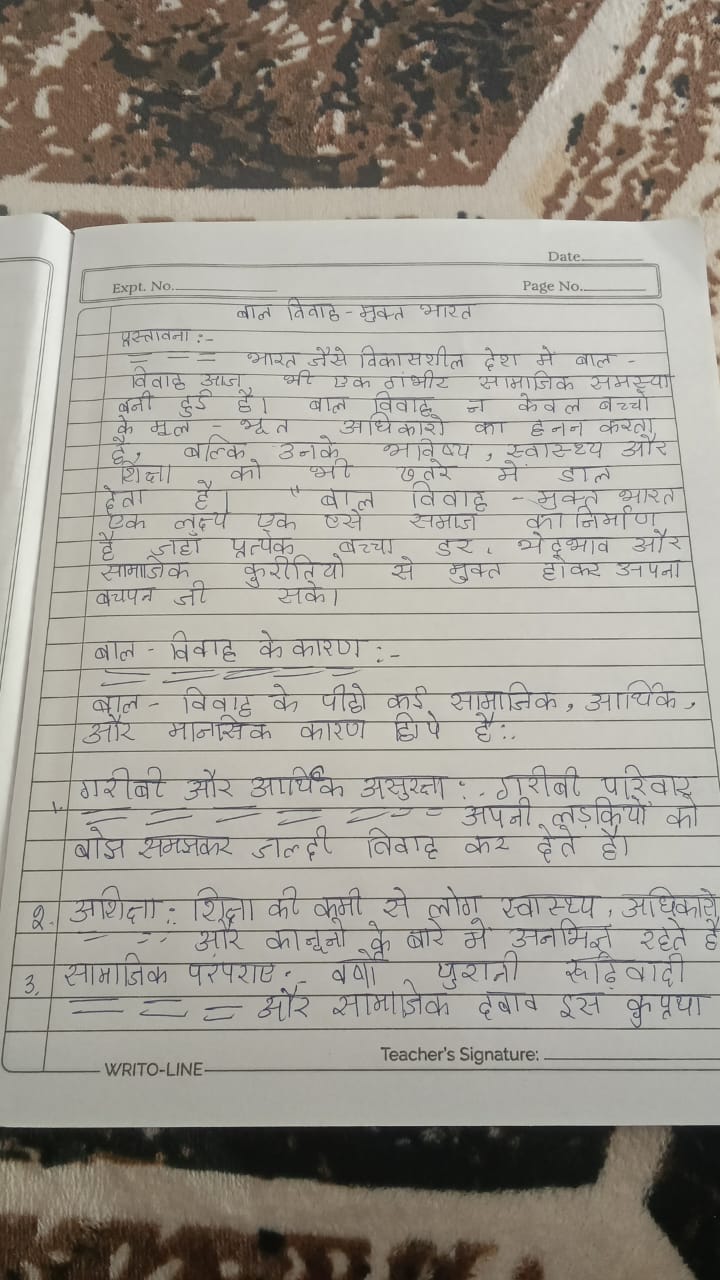 Date
Expt. No.
Page No.
बाल विवाह - मुक्त भारत
प्रस्तावना :-
भारत जैसे विकासशील देश में बाल -
विवाह आज भी एक गंभीर सामाजिक समस्या
बनी हुई है। बाल विवाह न केवल बच्चो
के मूल - भूत अधिकारो का हनन करता
है, बल्कि उनके भविष्य, स्वास्थ्य और
शिक्षा को भी खतरे में डाल
देता है। " बाल विवाह - मुक्त भारत
एक लक्ष्य एक ऐसे समाज का निर्माण
है जहाँ प्रत्येक बच्चा डर, भेदभाव और
सामाजिक कुरीतियो से मुक्त होकर अपना
बचपन जी सके।
बाल - विवाह के कारण :-
बाल - विवाह के पीछे कई सामाजिक, आर्थिक,
और मानसिक कारण छिपे है :.
1. गरीबी और आर्थिक असुरक्षा :. गरीबी परिवार
अपनी लड़कियों को
बोझ समजकर जल्दी विवाह कर देते है।
2. अशिक्षा :. शिक्षा की कमी से लोग स्वास्थ्य, अधिकारो
और कानूनो के बारे में अनभिज्ञ रहते है
3. सामाजिक परंपराए :- वर्षो पुरानी रूढ़िवादी
और सामाजिक दबाव इस कुप्रथा
Teacher's Signature:
WRITO-LINE